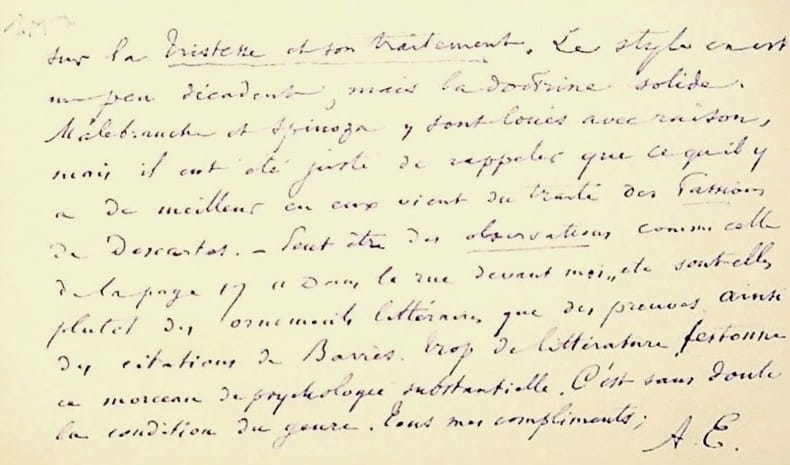 sur la Tristesse et son traitement. Le style en est
un peu décadent, mais la doctrine solide.
Malebranche et Spinoza y sont loués avec raison,
mais il eut été juste de rappeler que ce qu'il y
a de meilleur en eux vient du traité des Passions
de Descartes. — Peut être des observations comme celle
de la page 17 " Dans la rue devant moi,, etc sont elles
plutot des ornements littéraires que des preuves. ainsi
des citations de Barrès. Trop de littérature festonne
ce morceau de psychologie substantielle. C'est sans doute
la condition du genre. Tous mes compliments ;
A. E.